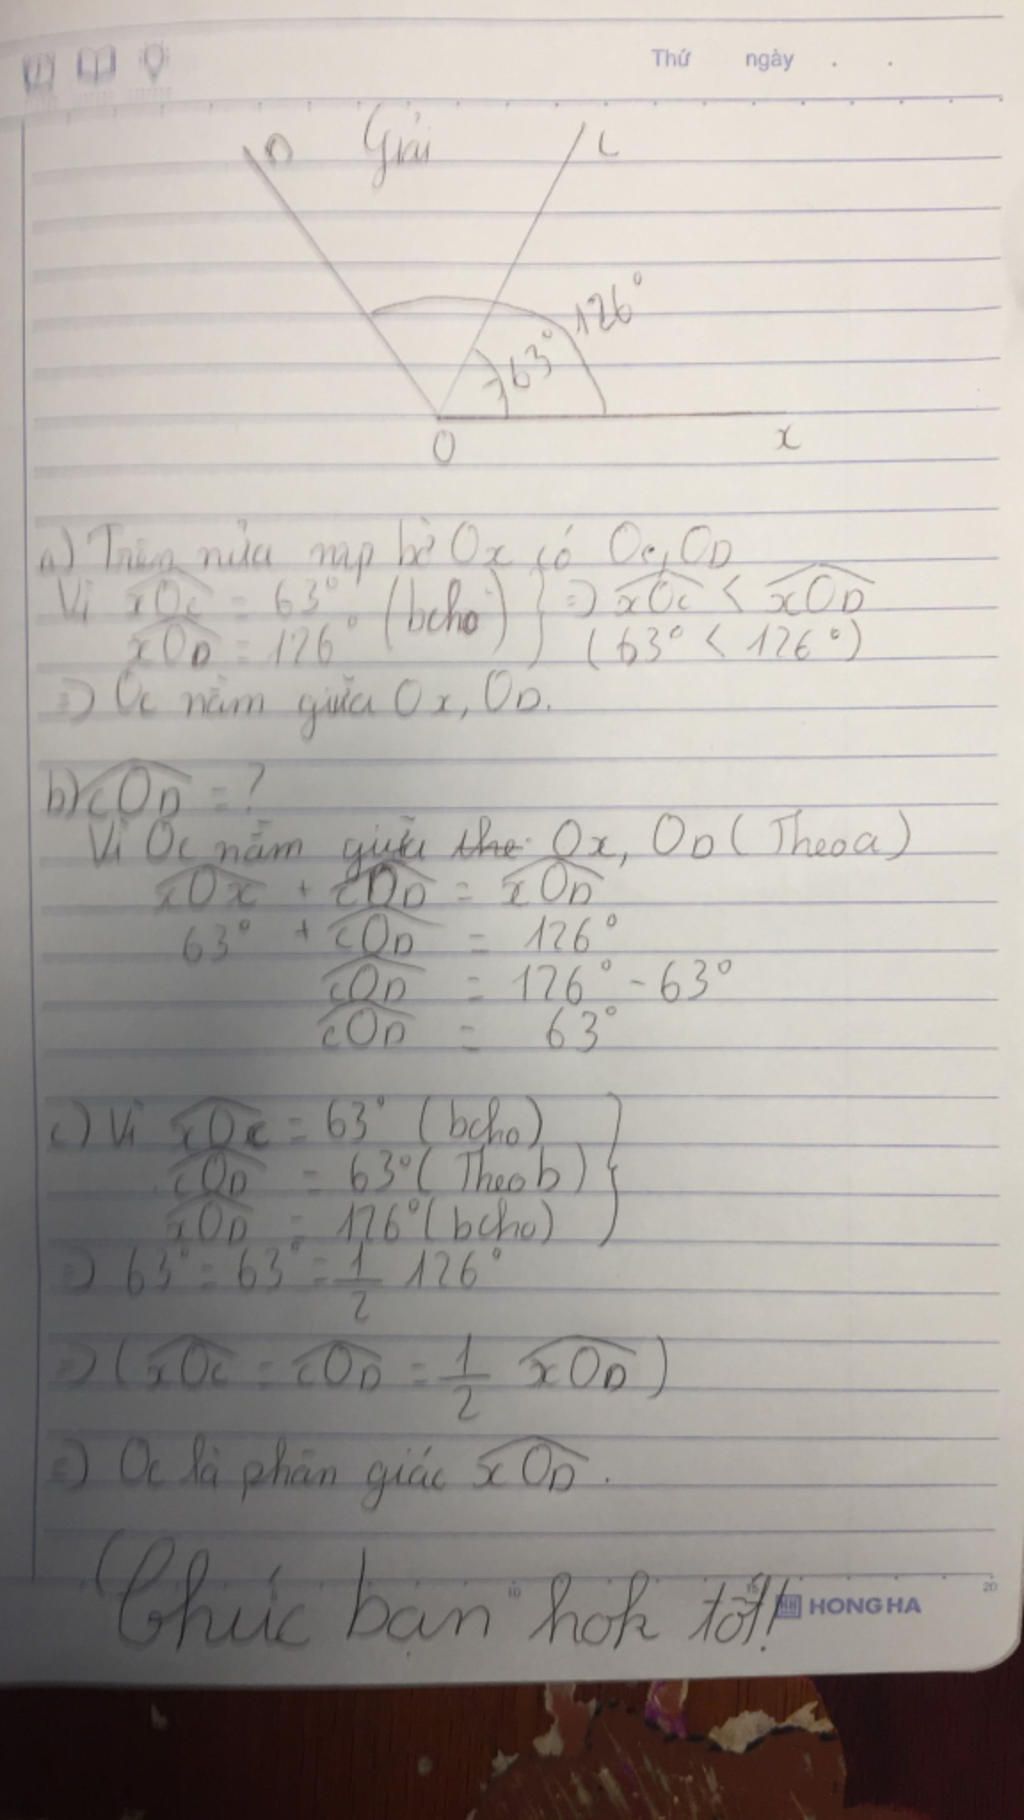 Thứ ngày . .
Giải
D
C
126°
63°
O
x
a) Trên nửa mp bờ Ox có Oc, OD
Vì xOc = 63° (bcho) } => xOc < xOD
xOD = 126° (63° < 126°)
=> Oc nằm giữa Ox, OD.
b) cOD = ?
Vì Oc nằm giữa the Ox, OD (Theo a)
xOx + cOD = xOD
63° + cOD = 126°
cOD = 126° - 63°
cOD = 63°
c) Vì xOc = 63° (bcho) }
cOD = 63° (Theo b)
xOD = 126° (bcho)
=> 63° = 63° = 1/2 126°
=> (xOc = cOD = 1/2 xOD)
=> Oc là phân giác xOD.
(Chúc bạn hok tốt!
10 15 20
HH HONG HA